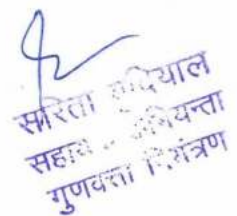 सरिता
सहायक अभियन्ता
गुणवत्ता नियंत्रण